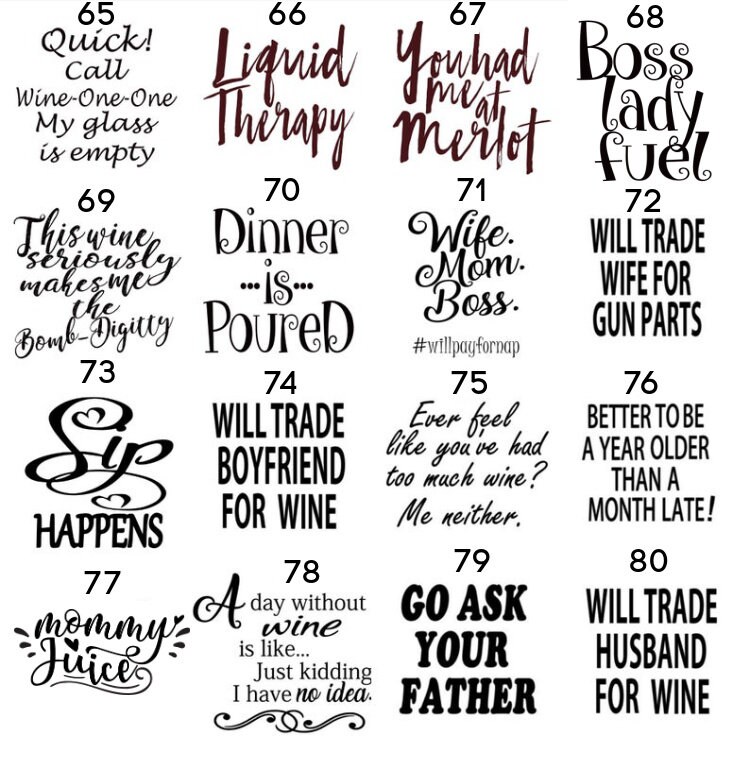 65
Quick!
Call
Wine-One-One
My glass
is empty
66
Liquid
Therapy
67
You had
me at
Merlot
68
Boss
lady
fuel
69
This wine
seriously
makes me
the
Bomb-Digitty
70
Dinner
...is...
Poured
71
Wife.
Mom.
Boss.
#willpayfornap
72
WILL TRADE
WIFE FOR
GUN PARTS
73
Sip
HAPPENS
74
WILL TRADE
BOYFRIEND
FOR WINE
75
Ever feel
like you've had
too much wine?
Me neither.
76
BETTER TO BE
A YEAR OLDER
THAN A
MONTH LATE!
77
mommy
Juice
78
A day without
wine
is like...
Just kidding
I have no idea.
79
GO ASK
YOUR
FATHER
80
WILL TRADE
HUSBAND
FOR WINE